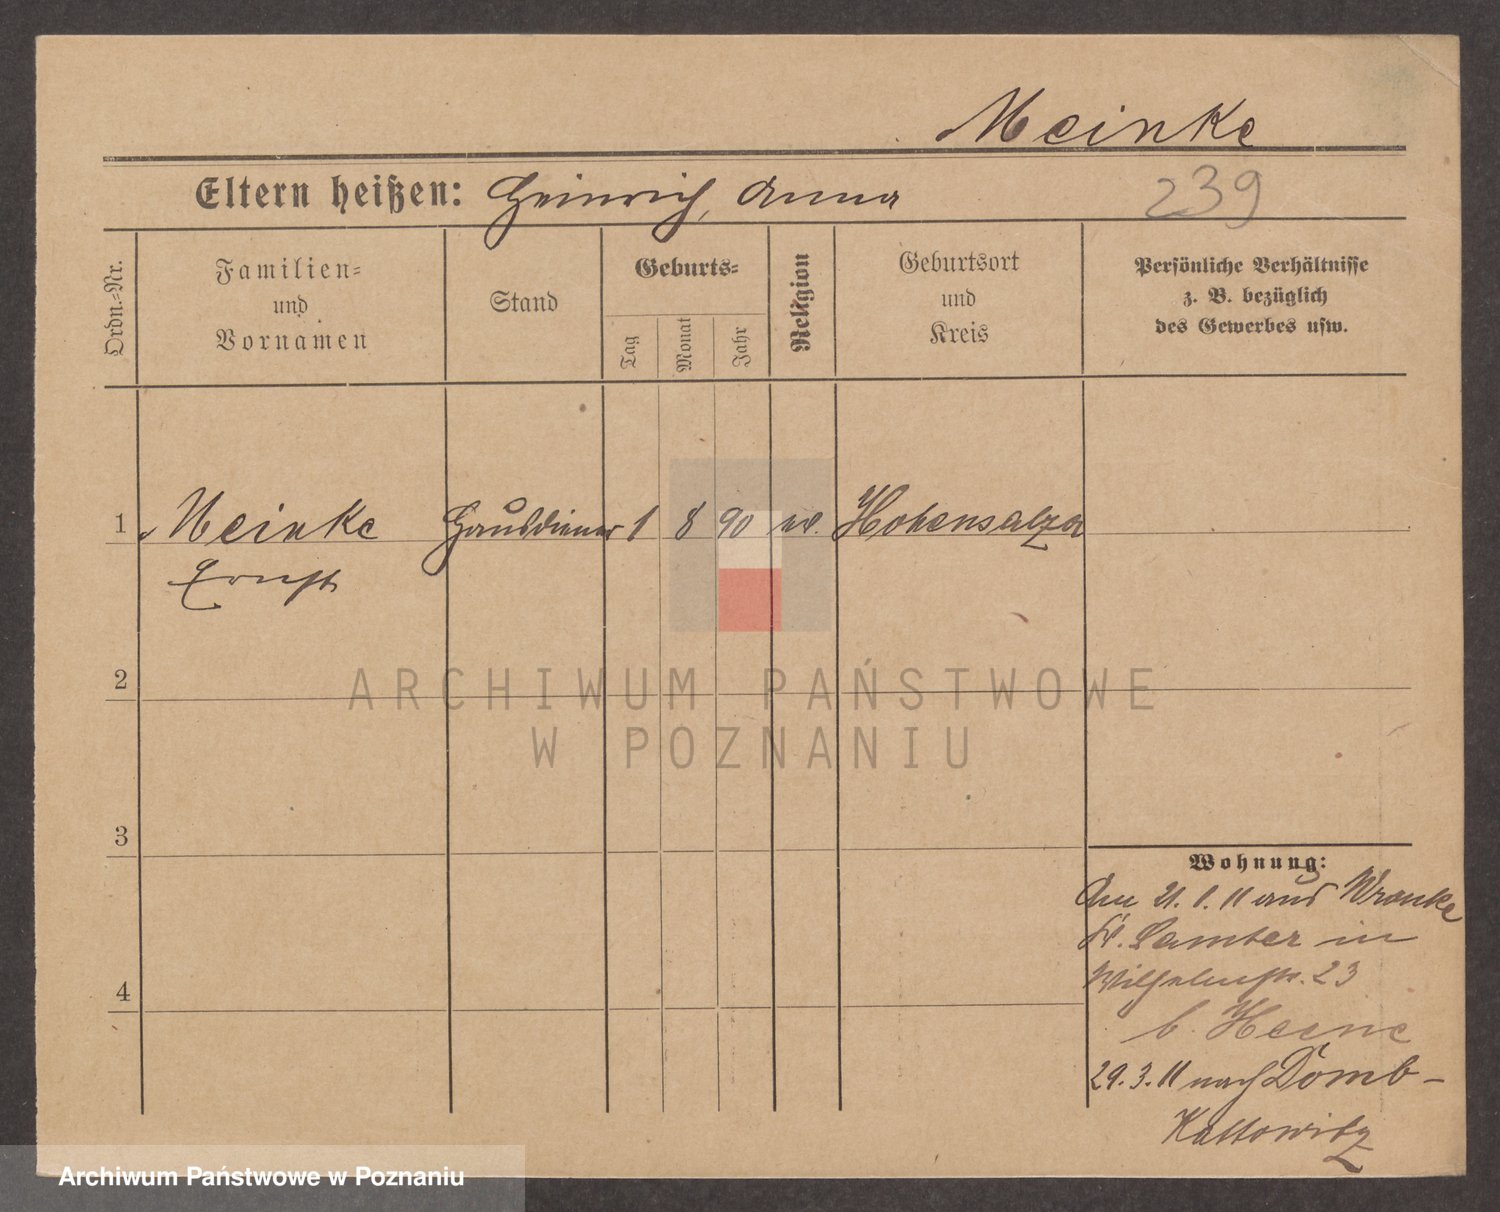 Meinke
Eltern heißen: Heinrich, Anna
239
Ordn.-Nr.
Familien-
und
Vornamen
Stand
Geburts-
Tag
Monat
Jahr
Religion
Geburtsort
und
Kreis
Persönliche Verhältnisse
z. B. bezüglich
des Gewerbes usw.
1 Meinke Hausdiener 1 8 90 ev. Hohensalza
Ernst
2
ARCHIWUM PAŃSTWOWE
W POZNANIU
3
Wohnung:
Am 21. 1. 11 aus Wronke
Kr. Samter in
Wilhelmstr. 23
b. Heene
4
29. 3. 11 nach Domb-
Kattowitz
Archiwum Państwowe w Poznaniu